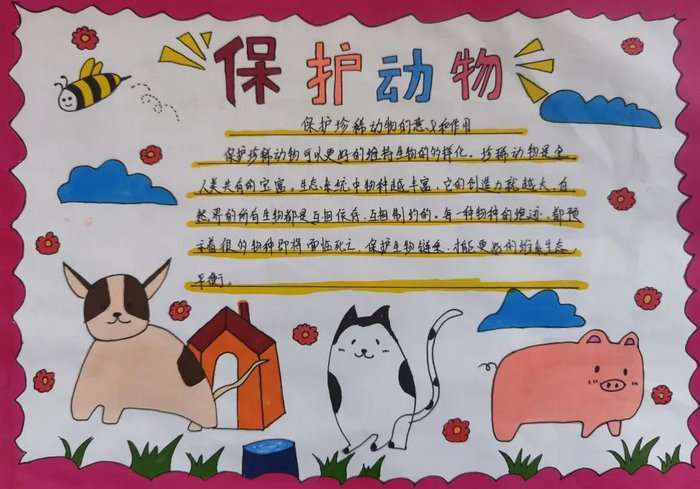 保护动物
保护珍稀动物的意义和作用
保护珍稀动物可以更好的维持生物的的样化。珍稀动物是全
人类共有的宝富。生态系统中物种越丰富，它的创造力就越大。自
然界的所有生物都是互相依存，互相制约的。每一种物种的绝迹，都预
示着很的物种即将面临死亡。保护生物链来，才能更好的维系生态
平衡。